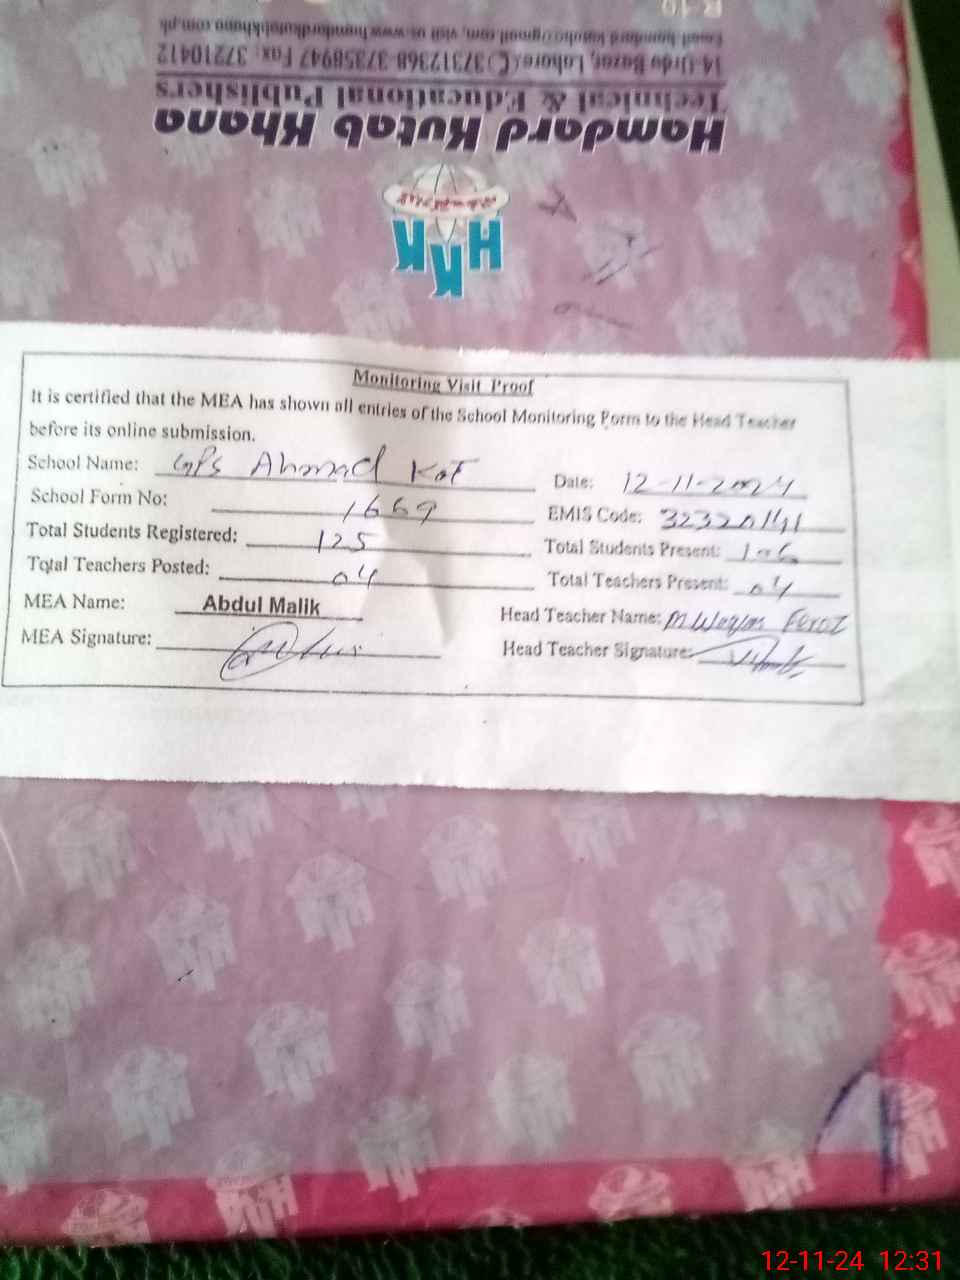 R-10
Email: hamdard.kutab@gmail.com, visit us www.hamdardkutabkhana.com.pk
14-Urdu Bazar, Lahore 37312368-37358947 Fax: 37210412
Technical & Educational Publishers
Hamdard Kutab Khana
HKK
Monitoring Visit Proof
It is certified that the MEA has shown all entries of the School Monitoring Form to the Head Teacher
before its online submission.
School Name: GPS Ahmad Kot Date: 12-11-2024
School Form No: 1669 EMIS Code: 32320141
Total Students Registered: 125 Total Students Present: 106
Total Teachers Posted: 04 Total Teachers Present: 04
MEA Name: Abdul Malik Head Teacher Name: M Waqas Feroz
MEA Signature: Head Teacher Signature:
12-11-24 12:31